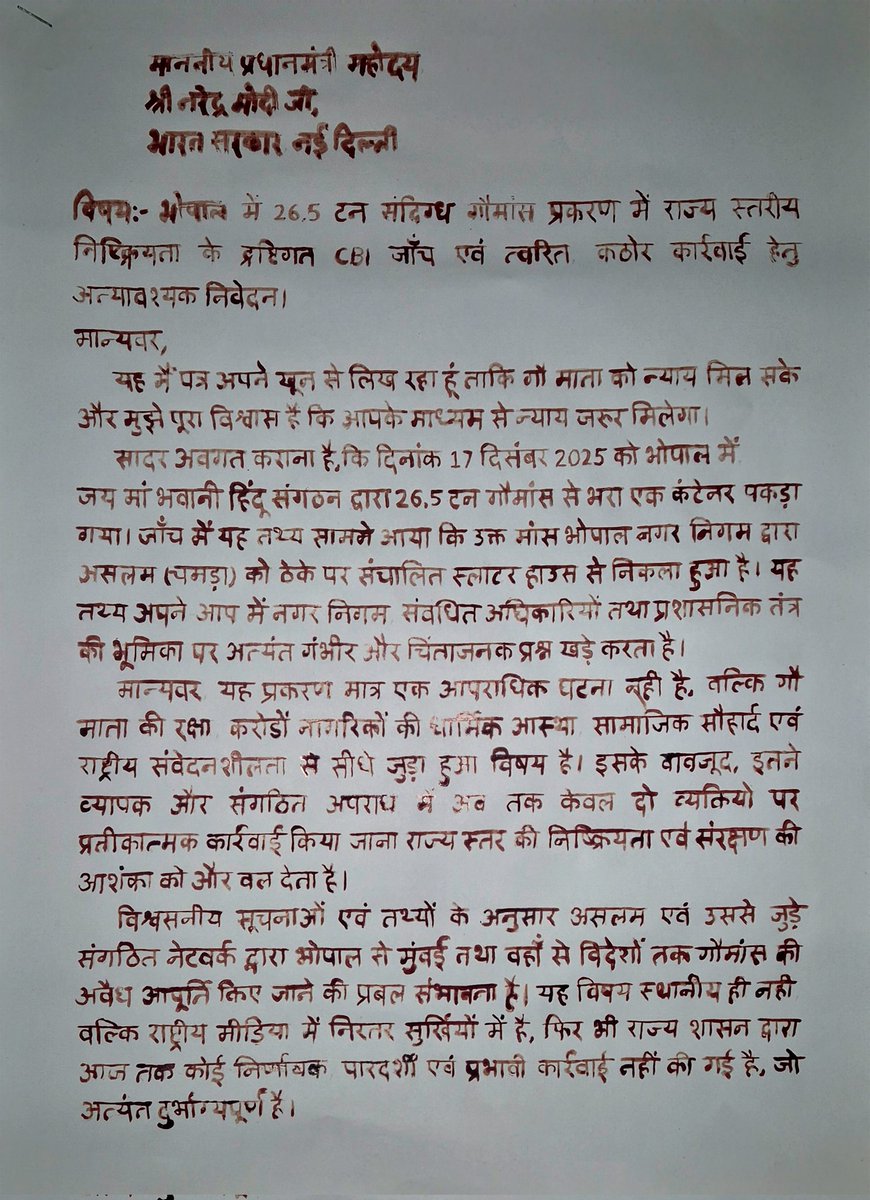 माननीय प्रधानमंत्री महोदय
श्री नरेंद्र मोदी जी,
भारत सरकार नई दिल्ली
विषय:- भोपाल में 26.5 टन संदिग्ध गौमांस प्रकरण में राज्य स्तरीय
निष्क्रियता के द्रष्टिगत CBI जाँच एवं त्वरित कठोर कार्रवाई हेतु
अत्यावश्यक निवेदन।
मान्यवर,
यह मैं पत्र अपने खून से लिख रहा हूं ताकि गौ माता को न्याय मिल सके
और मुझे पूरा विश्वास है कि आपके माध्यम से न्याय जरूर मिलेगा।
सादर अवगत कराना है,कि दिनांक 17 दिसंबर 2025 को भोपाल में
जय मां भवानी हिंदू संगठन द्वारा 26.5 टन गौमांस से भरा एक कंटेनर पकड़ा
गया। जाँच में यह तथ्य सामने आया कि उक्त मांस भोपाल नगर निगम द्वारा
असलम (चमड़ा) को ठेके पर संचालित स्लाटर हाउस से निकला हुआ है। यह
तथ्य अपने आप में नगर निगम संवधित अधिकारियों तथा प्रशासनिक तंत्र
की भूमिका पर अत्यंत गंभीर और चिंताजनक प्रश्न खड़े करता है।
मान्यवर यह प्रकरण मात्र एक आपराधिक घटना नही है, वल्कि गौ
माता की रक्षा करोडों नागरिकों की धार्मिक आस्था सामाजिक सौहार्द एवं
राष्ट्रीय संवेदनशीलता से सीधे जुड़ा हुआ विषय है। इसके वावजूद, इतने
व्यापक और संगठित अपराध में अब तक केवल दो व्यक्तियो पर
प्रतीकात्मक कार्रवाई किया जाना राज्य स्तर की निष्क्रियता एवं संरक्षण की
आशंका को और वल देता है।
विश्वसनीय सूचनाओं एवं तथ्यों के अनुसार असलम एवं उससे जुड़े
संगठित नेटवर्क द्वारा भोपाल से मुंवई तथा वहाँ से विदेशों तक गौमांस की
अवैध आपूर्ति किए जाने की प्रबल संभावना है। यह विषय स्थानीय ही नही
वल्कि राष्ट्रीय मीडिया में निरतर सुर्खियों में है, फिर भी राज्य शासन द्वारा
आज तक कोई निर्णायक पारदर्शी एवं प्रभावी कार्रवाई नहीं की गई है, जो
अत्यंत दुर्भाग्यपूर्ण है।